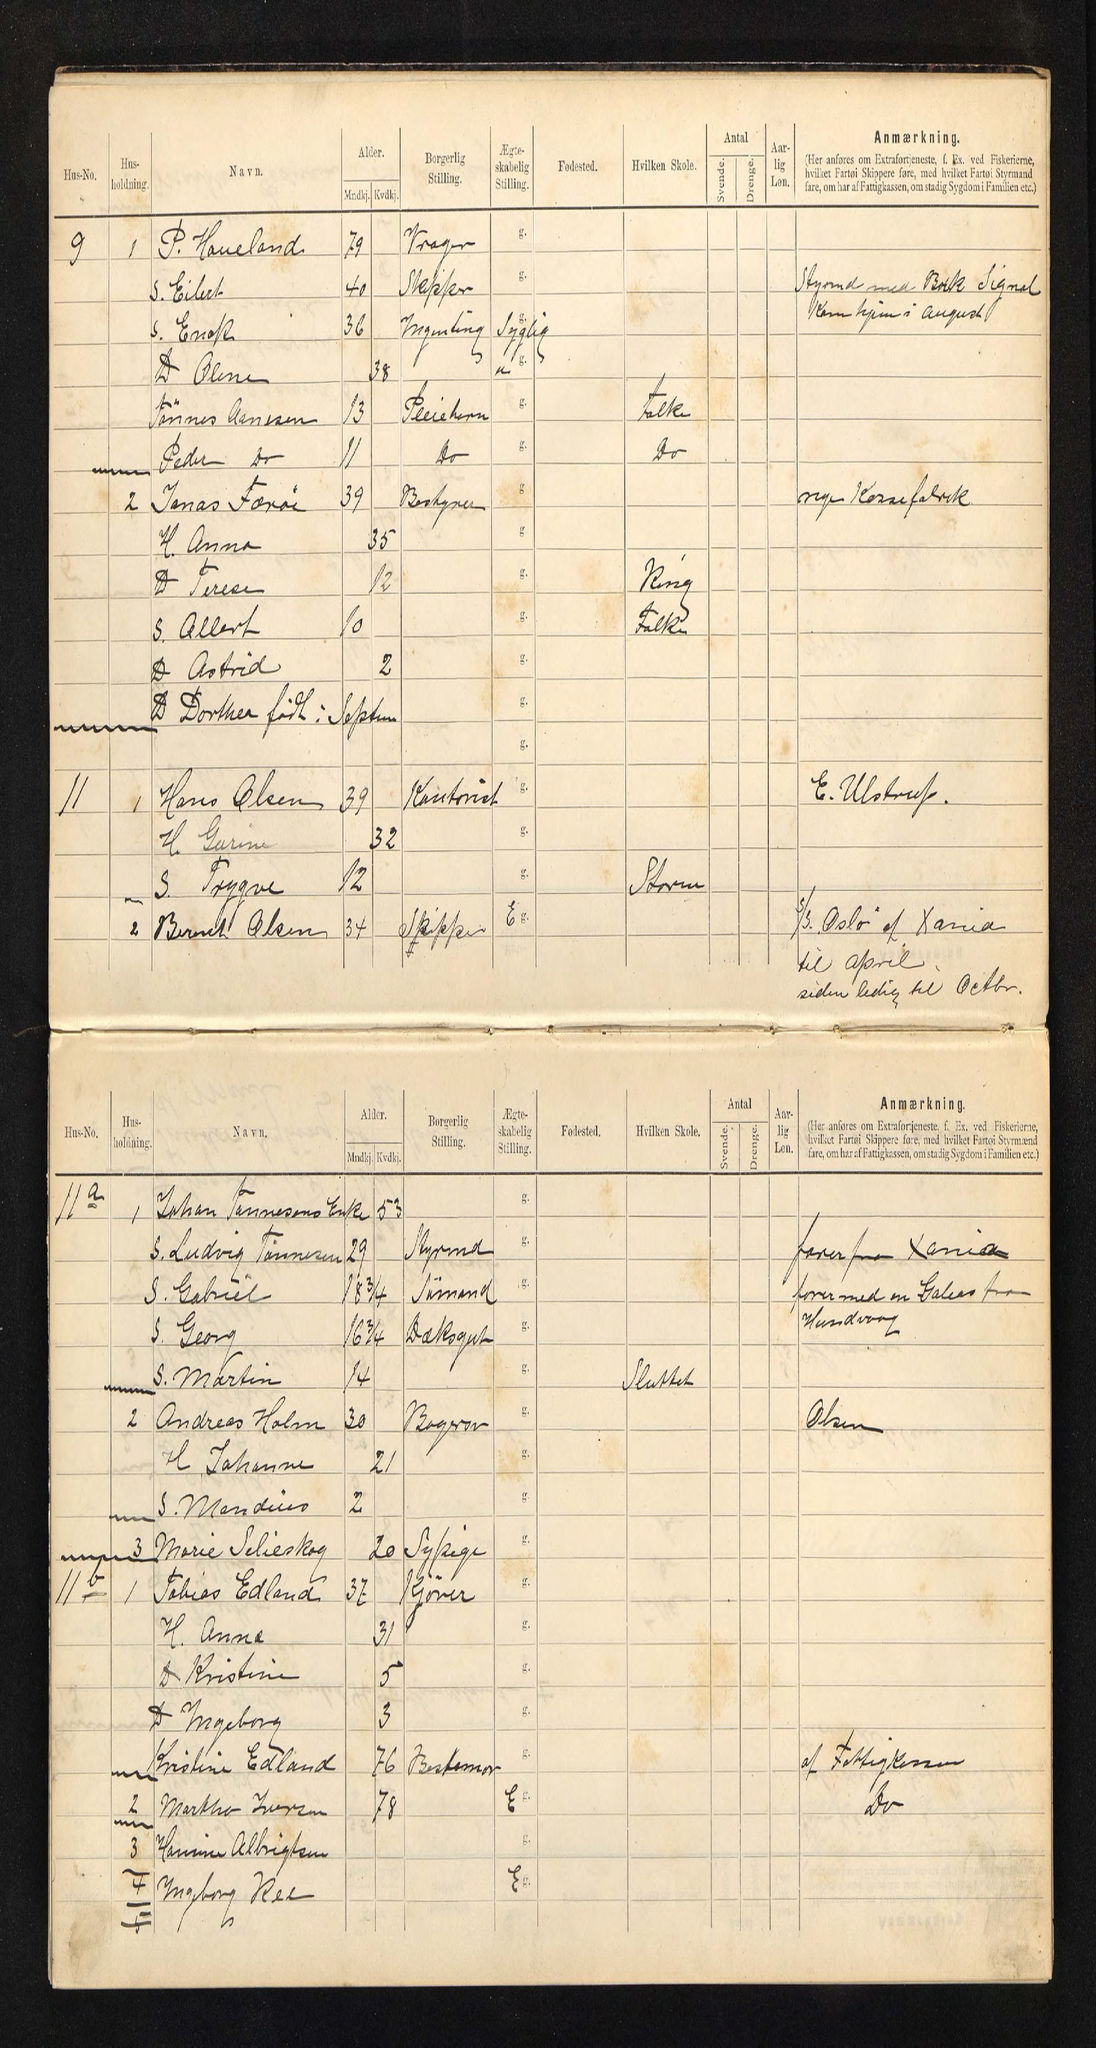 Hus-No. Hus-holdning. Navn. Alder. Mndkj. Kvdkj. Borgerlig Stilling. Ægte-skabelig Stilling. Fødested. Hvilken Skole. Antal Svende. Drenge. Aar-lig Løn. Anmærkning.
(Her anføres om Extrafortjeneste, f. Ex. ved Fiskerierne,
hvilket Fartøi Skippere føre, med hvilket Fartøi Styrmand
fare, om har af Fattigkassen, om stadig Sygdom i Familien etc.)
9 1 P. Haueland 79 Vrager g.
S. Eilert 40 Skipper g. Styrmd med Bark Signal
S. Enok 36 Ingenting Syglig g. Kom hjem i August
D Olene 38 u g.
Tönnes Aanesen 13 Pleiebarn g. Falke
Peder Do 11 Do g. Do
2 Jonas Færöi 39 Bestyrer g nye Kassefabrik
H. Anna 35 g
D Terese 12 g. King
S. Allert 10 g. Falke
D Astrid 2 g.
D Dorthea födt i Septem g.
g.
11 1 Hans Olsen 39 Kontorist g. E. Ulstrup.
H. Gurine 32 g.
S. Trygve 12 g. Storm
2 Bernt Olsen 34 Skipper E g. S/S. Oslo" af Xania
til april.
siden ledig til Octbr.
Hus-No. Hus-holdning. Navn. Alder. Mndkj. Kvdkj. Borgerlig Stilling. Ægte-skabelig Stilling. Fødested. Hvilken Skole. Antal Svende. Drenge. Aar-lig Løn. Anmærkning.
(Her anføres om Extrafortjeneste, f. Ex. ved Fiskerierne,
hvilket Fartøi Skippere føre, med hvilket Fartøi Styrmænd
fare, om har af Fattigkassen, om stadig Sygdom i Familien etc.)
11 a 1 Johan Tönnesens Enke 53 g.
S. Ludvig Tönnesen 29 Styrmd g. farer fra Xania
S. Gabriel 18 3/4 Sömand g. farer med en Galeas fra
S. Georg 16 3/4 Dæksgut g. Hundvaag
S. Martin 14 g. Sluttet
2 Andreas Holm 30 Bagersv g. Olsen
H Johanne 21 g.
S. Mandius 2 g.
3 Marie Selieskog 20 Sypige g.
11 b 1 Tobias Edland 37 Kjörer g.
H. Anna 31 g.
D Kristine 5 g.
D Ingeborg 3 g.
Kristine Edland 76 Bestemor g. af Fattigkassen
2 Martha Iversen 78 E g. Do
3 Hansine Albrigtsen g.
4 Ingeborg Ree E g.